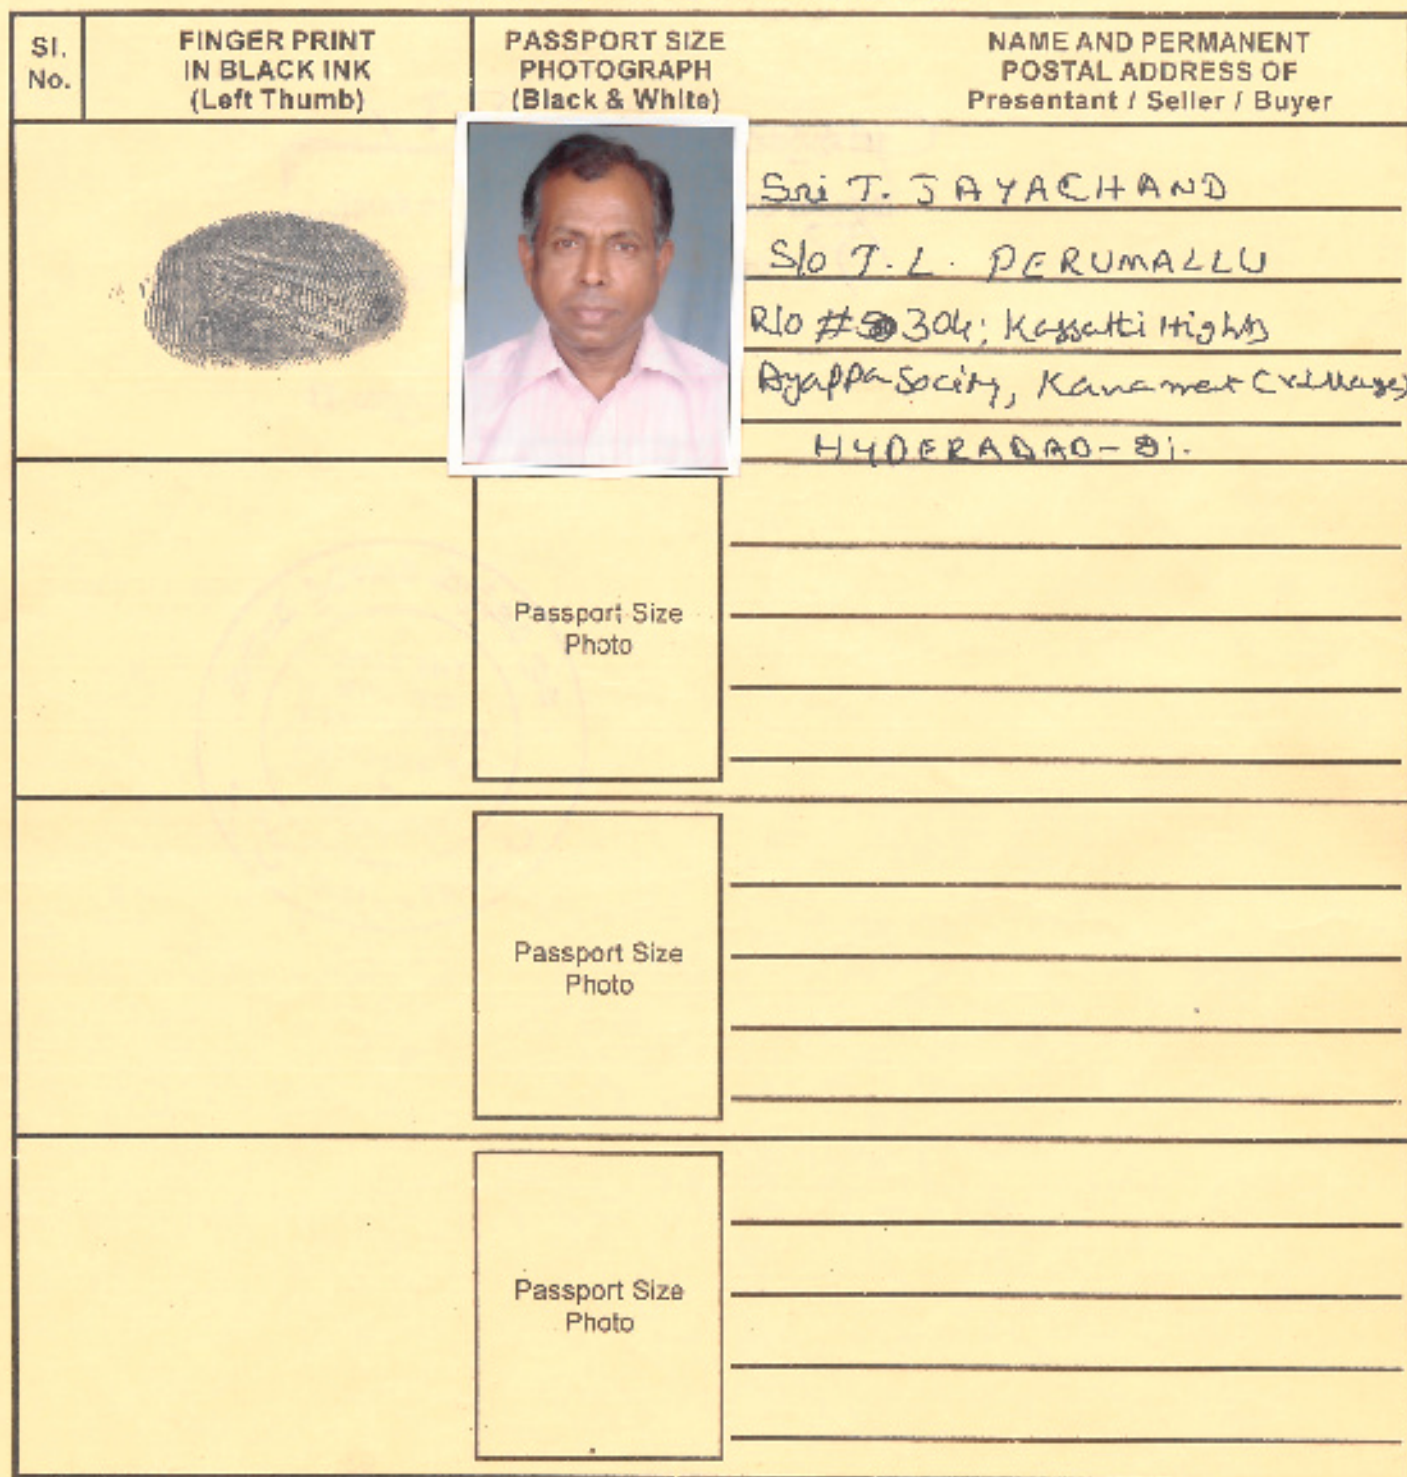 Sl. No.
FINGER PRINT IN BLACK INK (Left Thumb)
PASSPORT SIZE PHOTOGRAPH (Black & White)
NAME AND PERMANENT POSTAL ADDRESS OF Presentant / Seller / Buyer
Sri T. JAYACHAND
S/o T. L. PERUMALLU
R/o # 304; Kassatti Hights
Ayappa Socity, Kanamet (village)
HYDERABAD - 81.
Passport Size
Photo
Passport Size
Photo
Passport Size
Photo